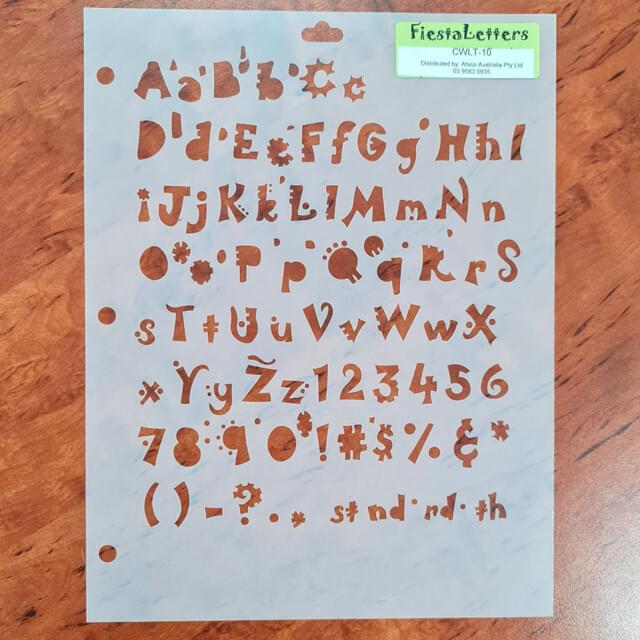 FiestaLetters
CWLT-10
Distributed by: Atsco Australia Pty Ltd
03 9583 0935
A a B b C c
D d E e F f G g H h I
i J j K k L l M m N n
O o P p Q q R r S
s T t U u V v W w X
x Y y Z z 1 2 3 4 5 6
7 8 9 0 ! # $ % & *
( ) - ? . , st nd rd th